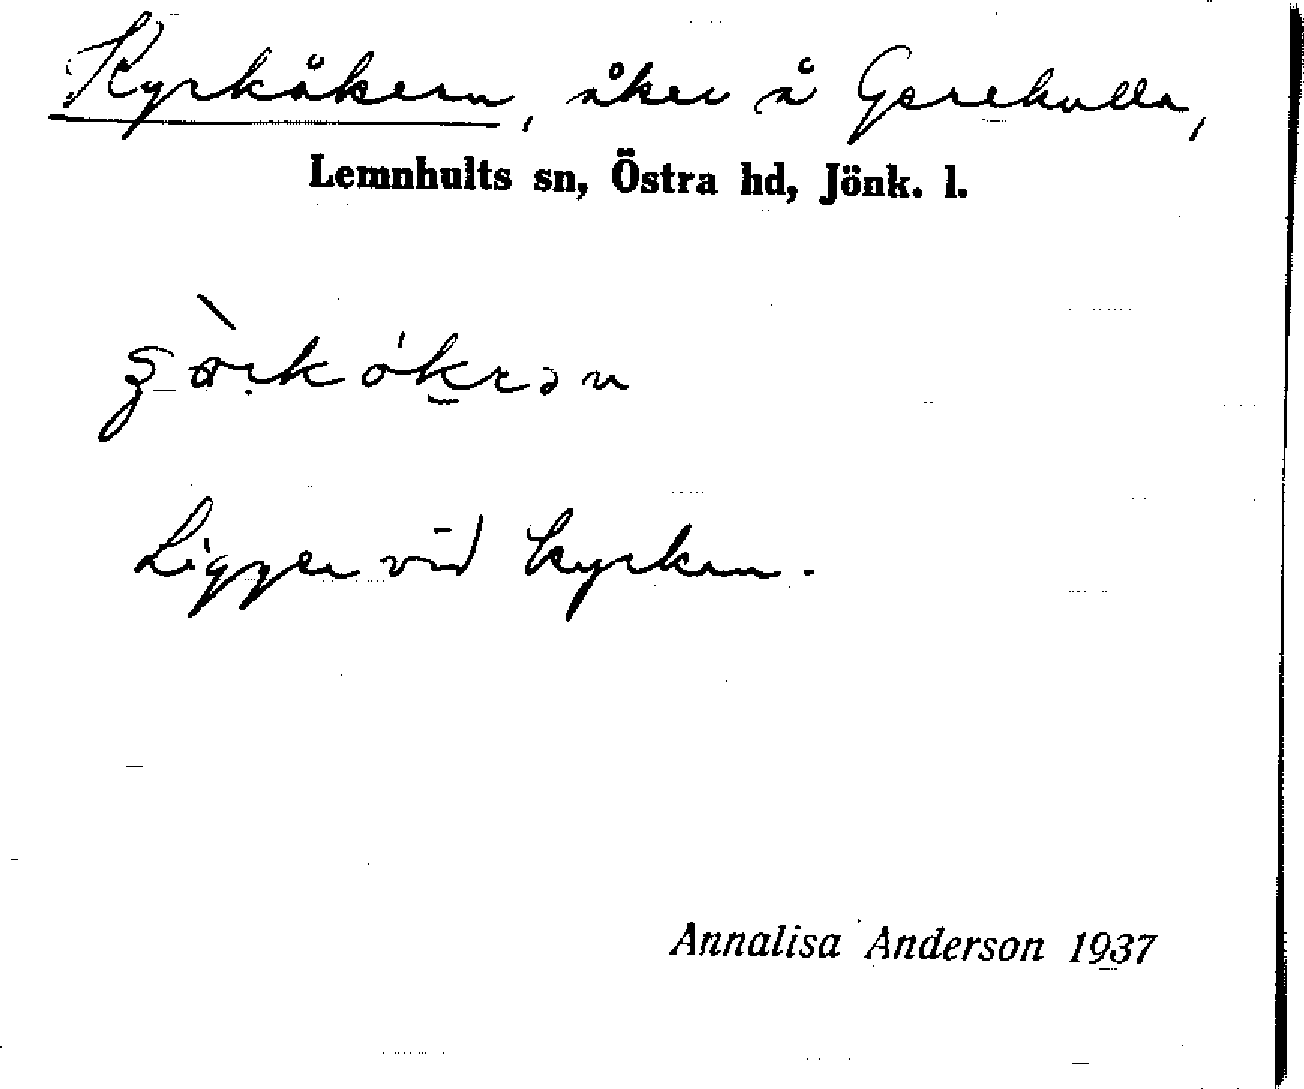 Kyrkåkern, åker å Gerekulla,
Lemnhults sn, Östra hd, Jönk. l.
Ligger vid kyrkan.
Annalisa Anderson 1937